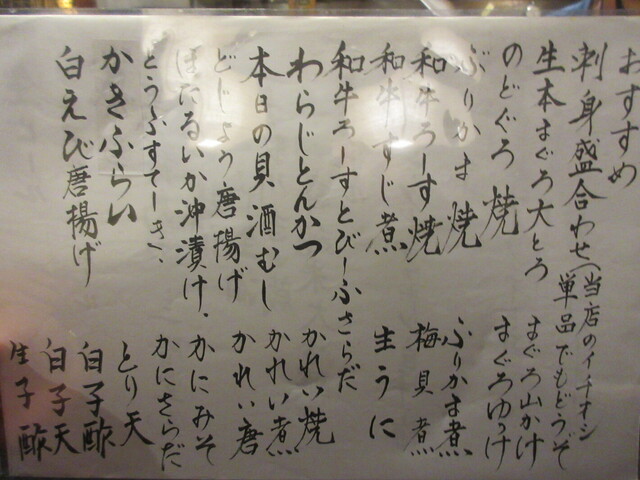 おすすめ
刺身盛合わせ(当店のイチオシ
単品でもどうぞ
生本まぐろ大とろ
まぐろ山かけ
のどぐろ焼
まぐろゆっけ
ぶりかま焼
ぶりかま煮
和牛ろーす焼
梅貝煮
和牛すじ煮
生うに
和牛ろーすとびーふさらだ
わらじとんかつ
かれい焼
本日の貝酒むし
かれい煮
どじょう唐揚げ
かれい唐
ほたるいか沖漬け
かにみそ
とうふすてーき
かにさらだ
かきふらい
とり天
白えび唐揚げ
白子酢
白子天
生子酢